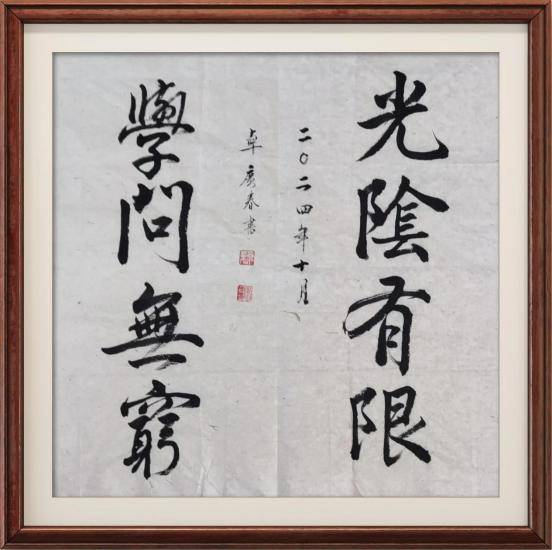 光陰有限
二〇二四年十月
卓廣春書
學問無窮